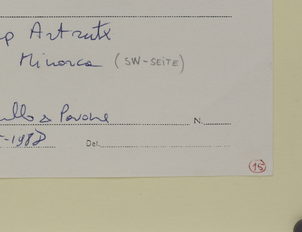 p Artrutx
Minorca (SW-SEITE)
ullo & Pavone N.
-1988 Det.
15